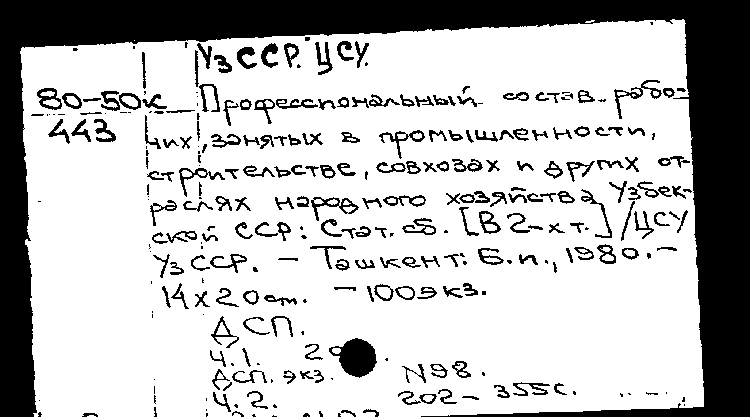 УзССР. ЦСУ.
80-50к Профессиональный состав рабо-
443 чих, занятых в промышленности,
строительстве, совхозах и других от-
раслях народного хозяйства Узбек-
ской ССР: Стат. сб. [В 2-х т.] /ЦСУ
УзССР. — Ташкент: Б.и., 1980. —
14х20см. — 100экз.
ДСП.
Ч.1.
ДСП. экз. N98.
Ч.2. 202-355с.